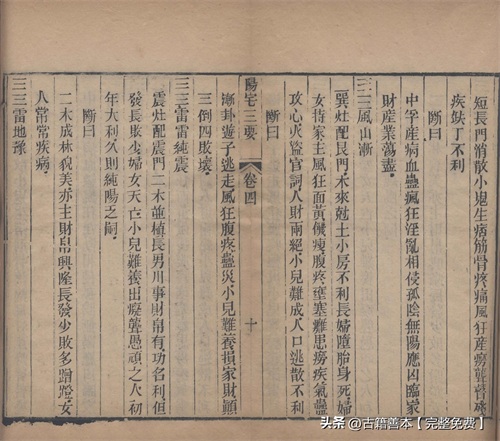 短長門消散小鬼生痞筋骨疼痛風狂產癆聾瞽殘
疾缺丁不利
斷曰
中孚產病血蠱瘋狂淫亂相侵孤陰無陽應凶臨家
財產業蕩盡
風山漸
巽灶配艮門木來尅土小房不利長婦墮胎身死婦
女持家主風狂面黃候瘦腹疼壅塞難患癆疾氣蠱
攻心火盜官詞人財兩絕小兒難成人口逃散不利
斷曰
陽宅三要
卷四
十
漸卦遊子逃走風狂腹疼蠱災小兒難養損家財顛
三倒四敗壞
雷雷純震
震灶配震門二木並植長男用事財帛有功名利但
發長敗少婦女夭亡小兒難養出癡聾愚頑之人初
年大利久則純陽之嗣
斷曰
二木成林貌美亦主財帛興隆長發少敗多蹭蹬女
人常常疾病
雷地豫
头条 @古籍善本【完整免费】